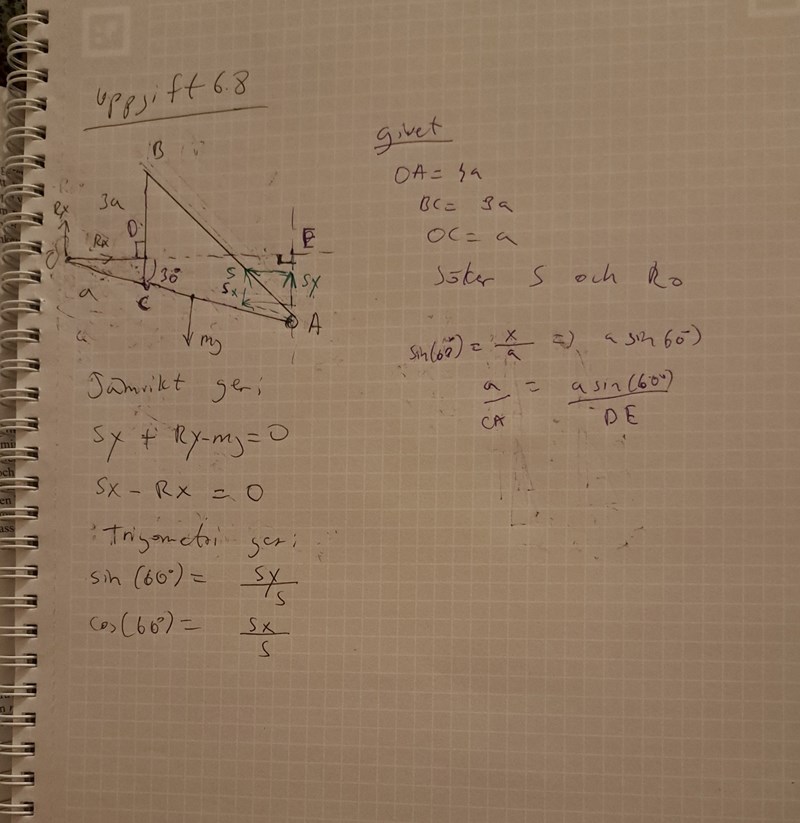 Uppgift 6.8
B
3a
D
E
Rx
Rx
O
30°
S
Sx
Sy
a
C
a
mg
A
Jämvikt ger:
Sy + Ry-mg=0
Sx - Rx = 0
Trigometri ger:
sin (60°) = Sy/S
cos(60°) = Sx/S
givet
OA= 4a
BC= 3a
OC= a
Söker S och Ro
sin(60°) = x/a => a sin 60°)
a/CA = a sin(60°)/DE